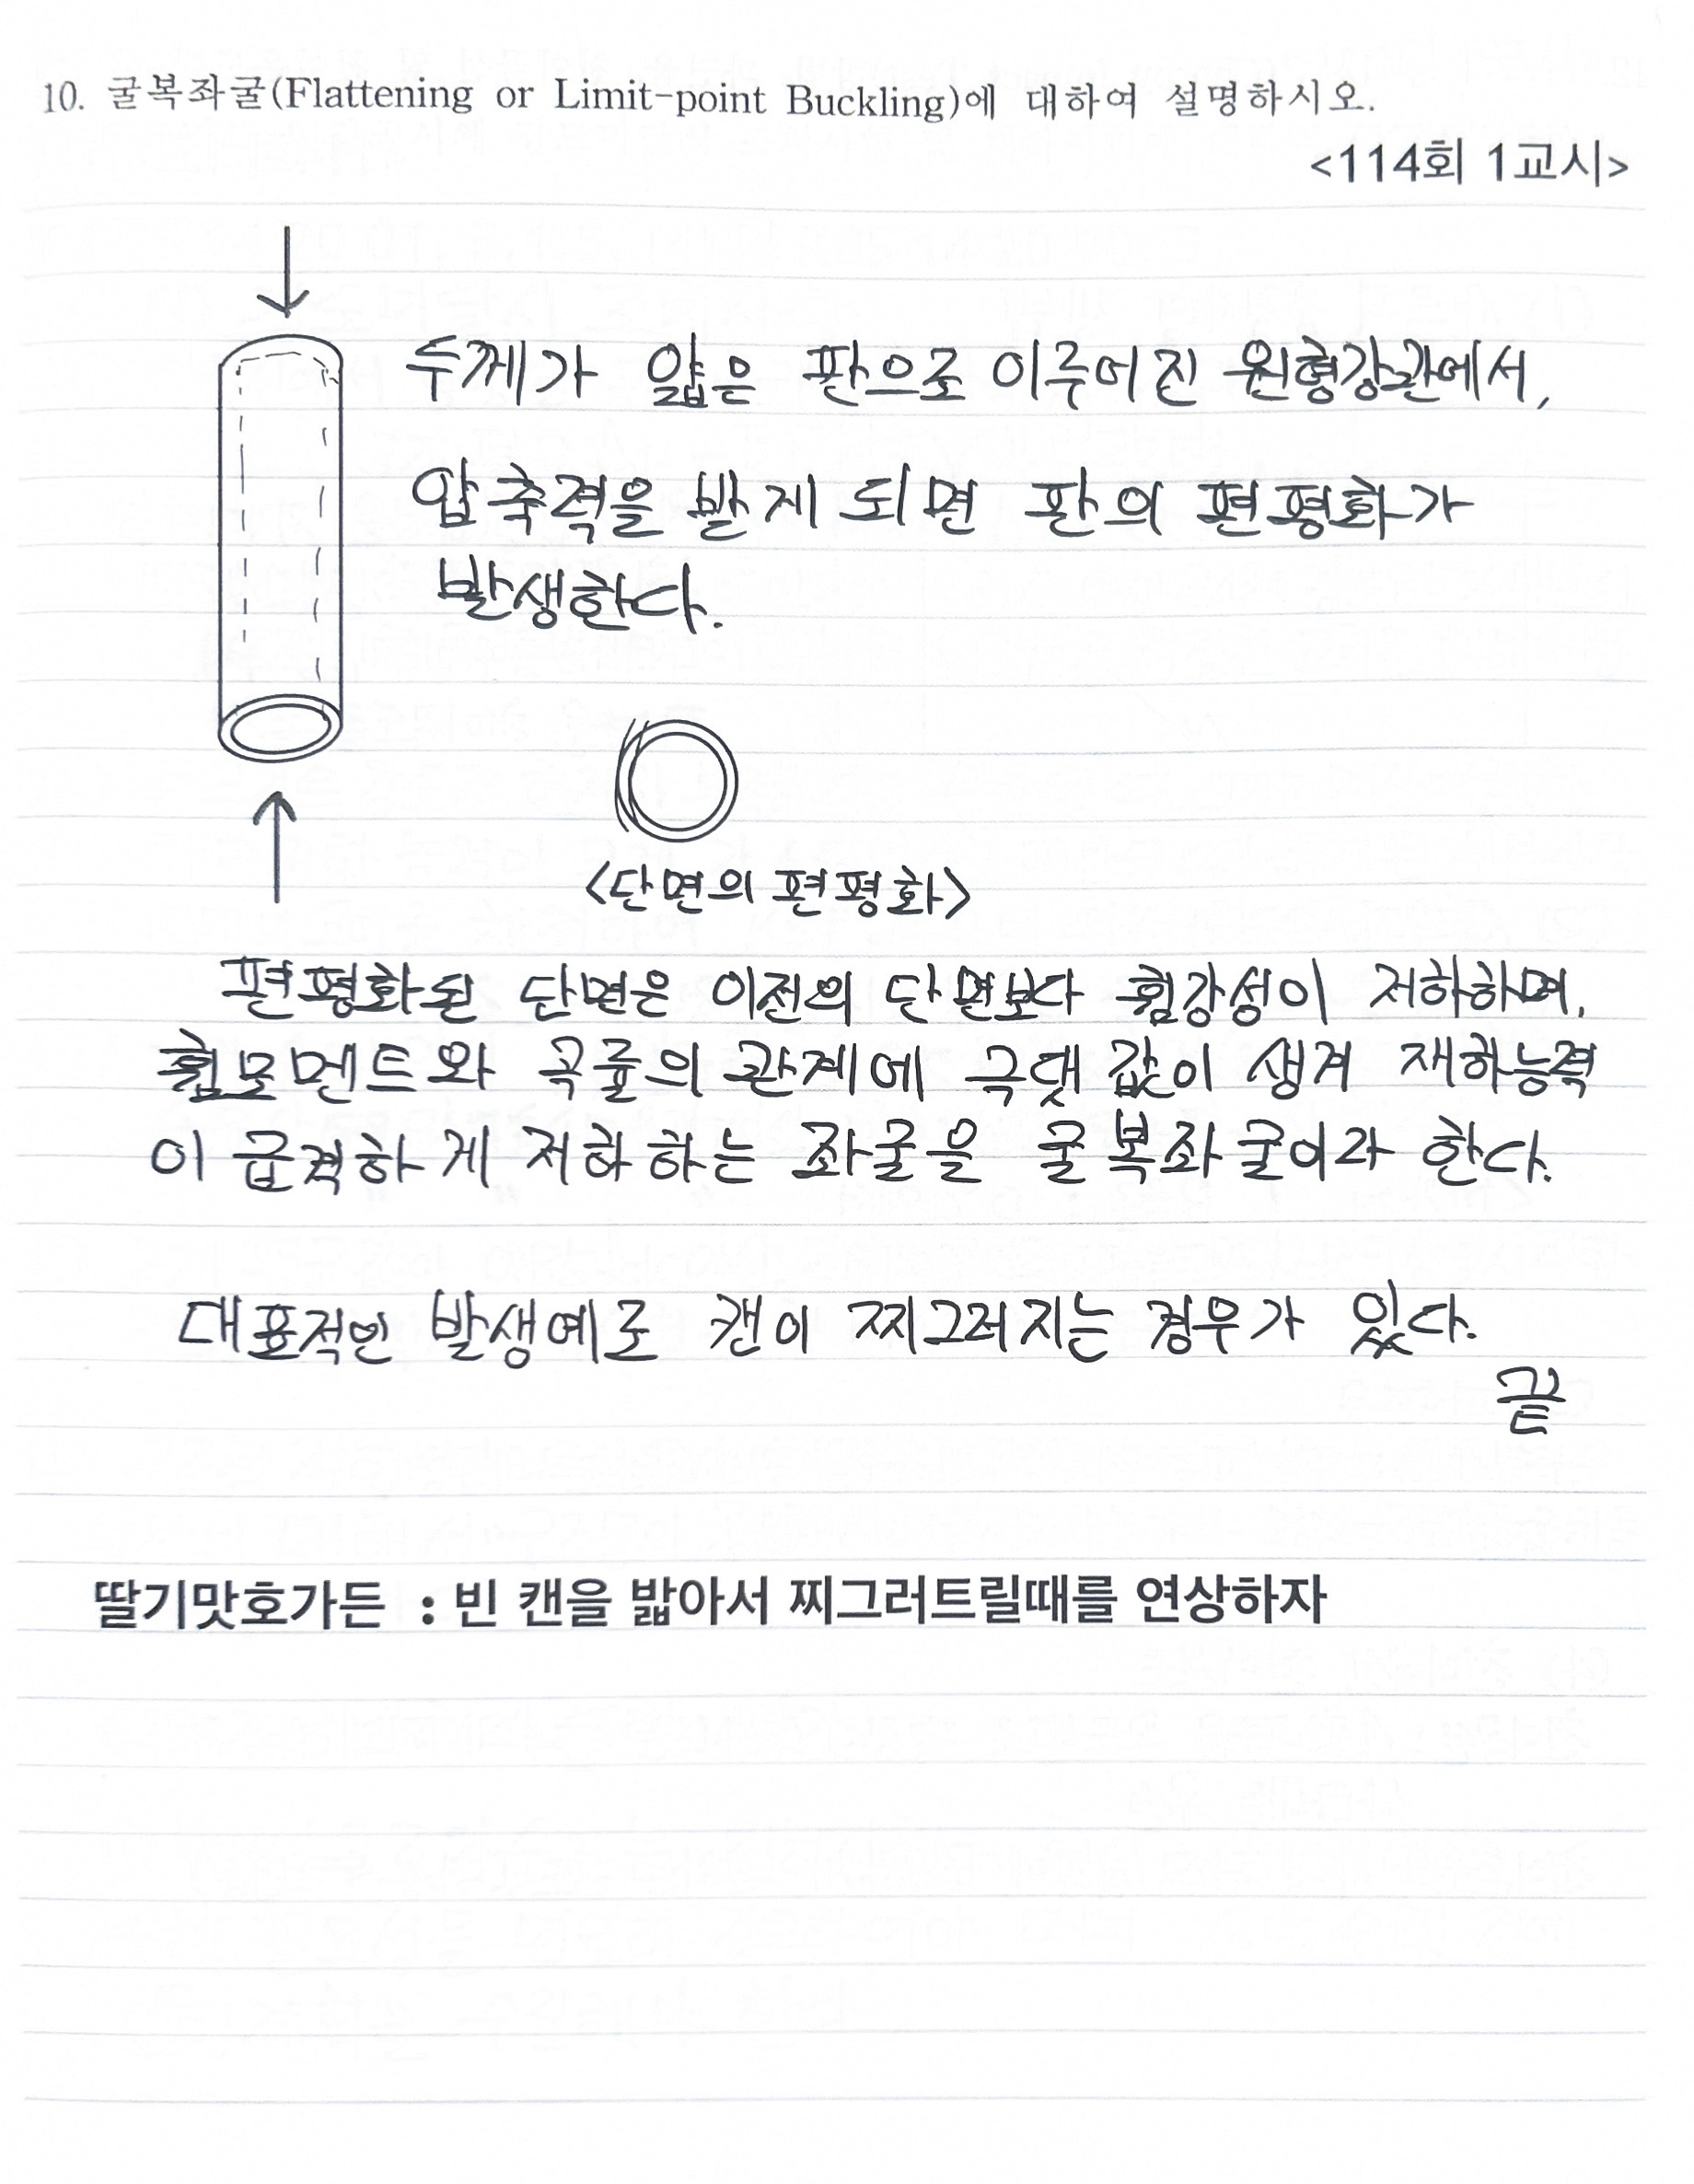 10. 굴복좌굴(Flattening or Limit-point Buckling)에 대하여 설명하시오.
<114회 1교시>
두께가 얇은 판으로 이루어진 원형강관에서,
압축력을 받게 되면 판의 편평화가
발생한다.
<단면의 편평화>
편평화된 단면은 이전의 단면보다 휨강성이 저하하며,
휨모멘트와 곡률의 관계에 극댓값이 생겨 재하능력
이 급격하게 저하하는 좌굴을 굴복좌굴이라 한다.
대표적인 발생예로 캔이 찌그러지는 경우가 있다.
끝
딸기맛호가든 : 빈 캔을 밟아서 찌그러트릴때를 연상하자